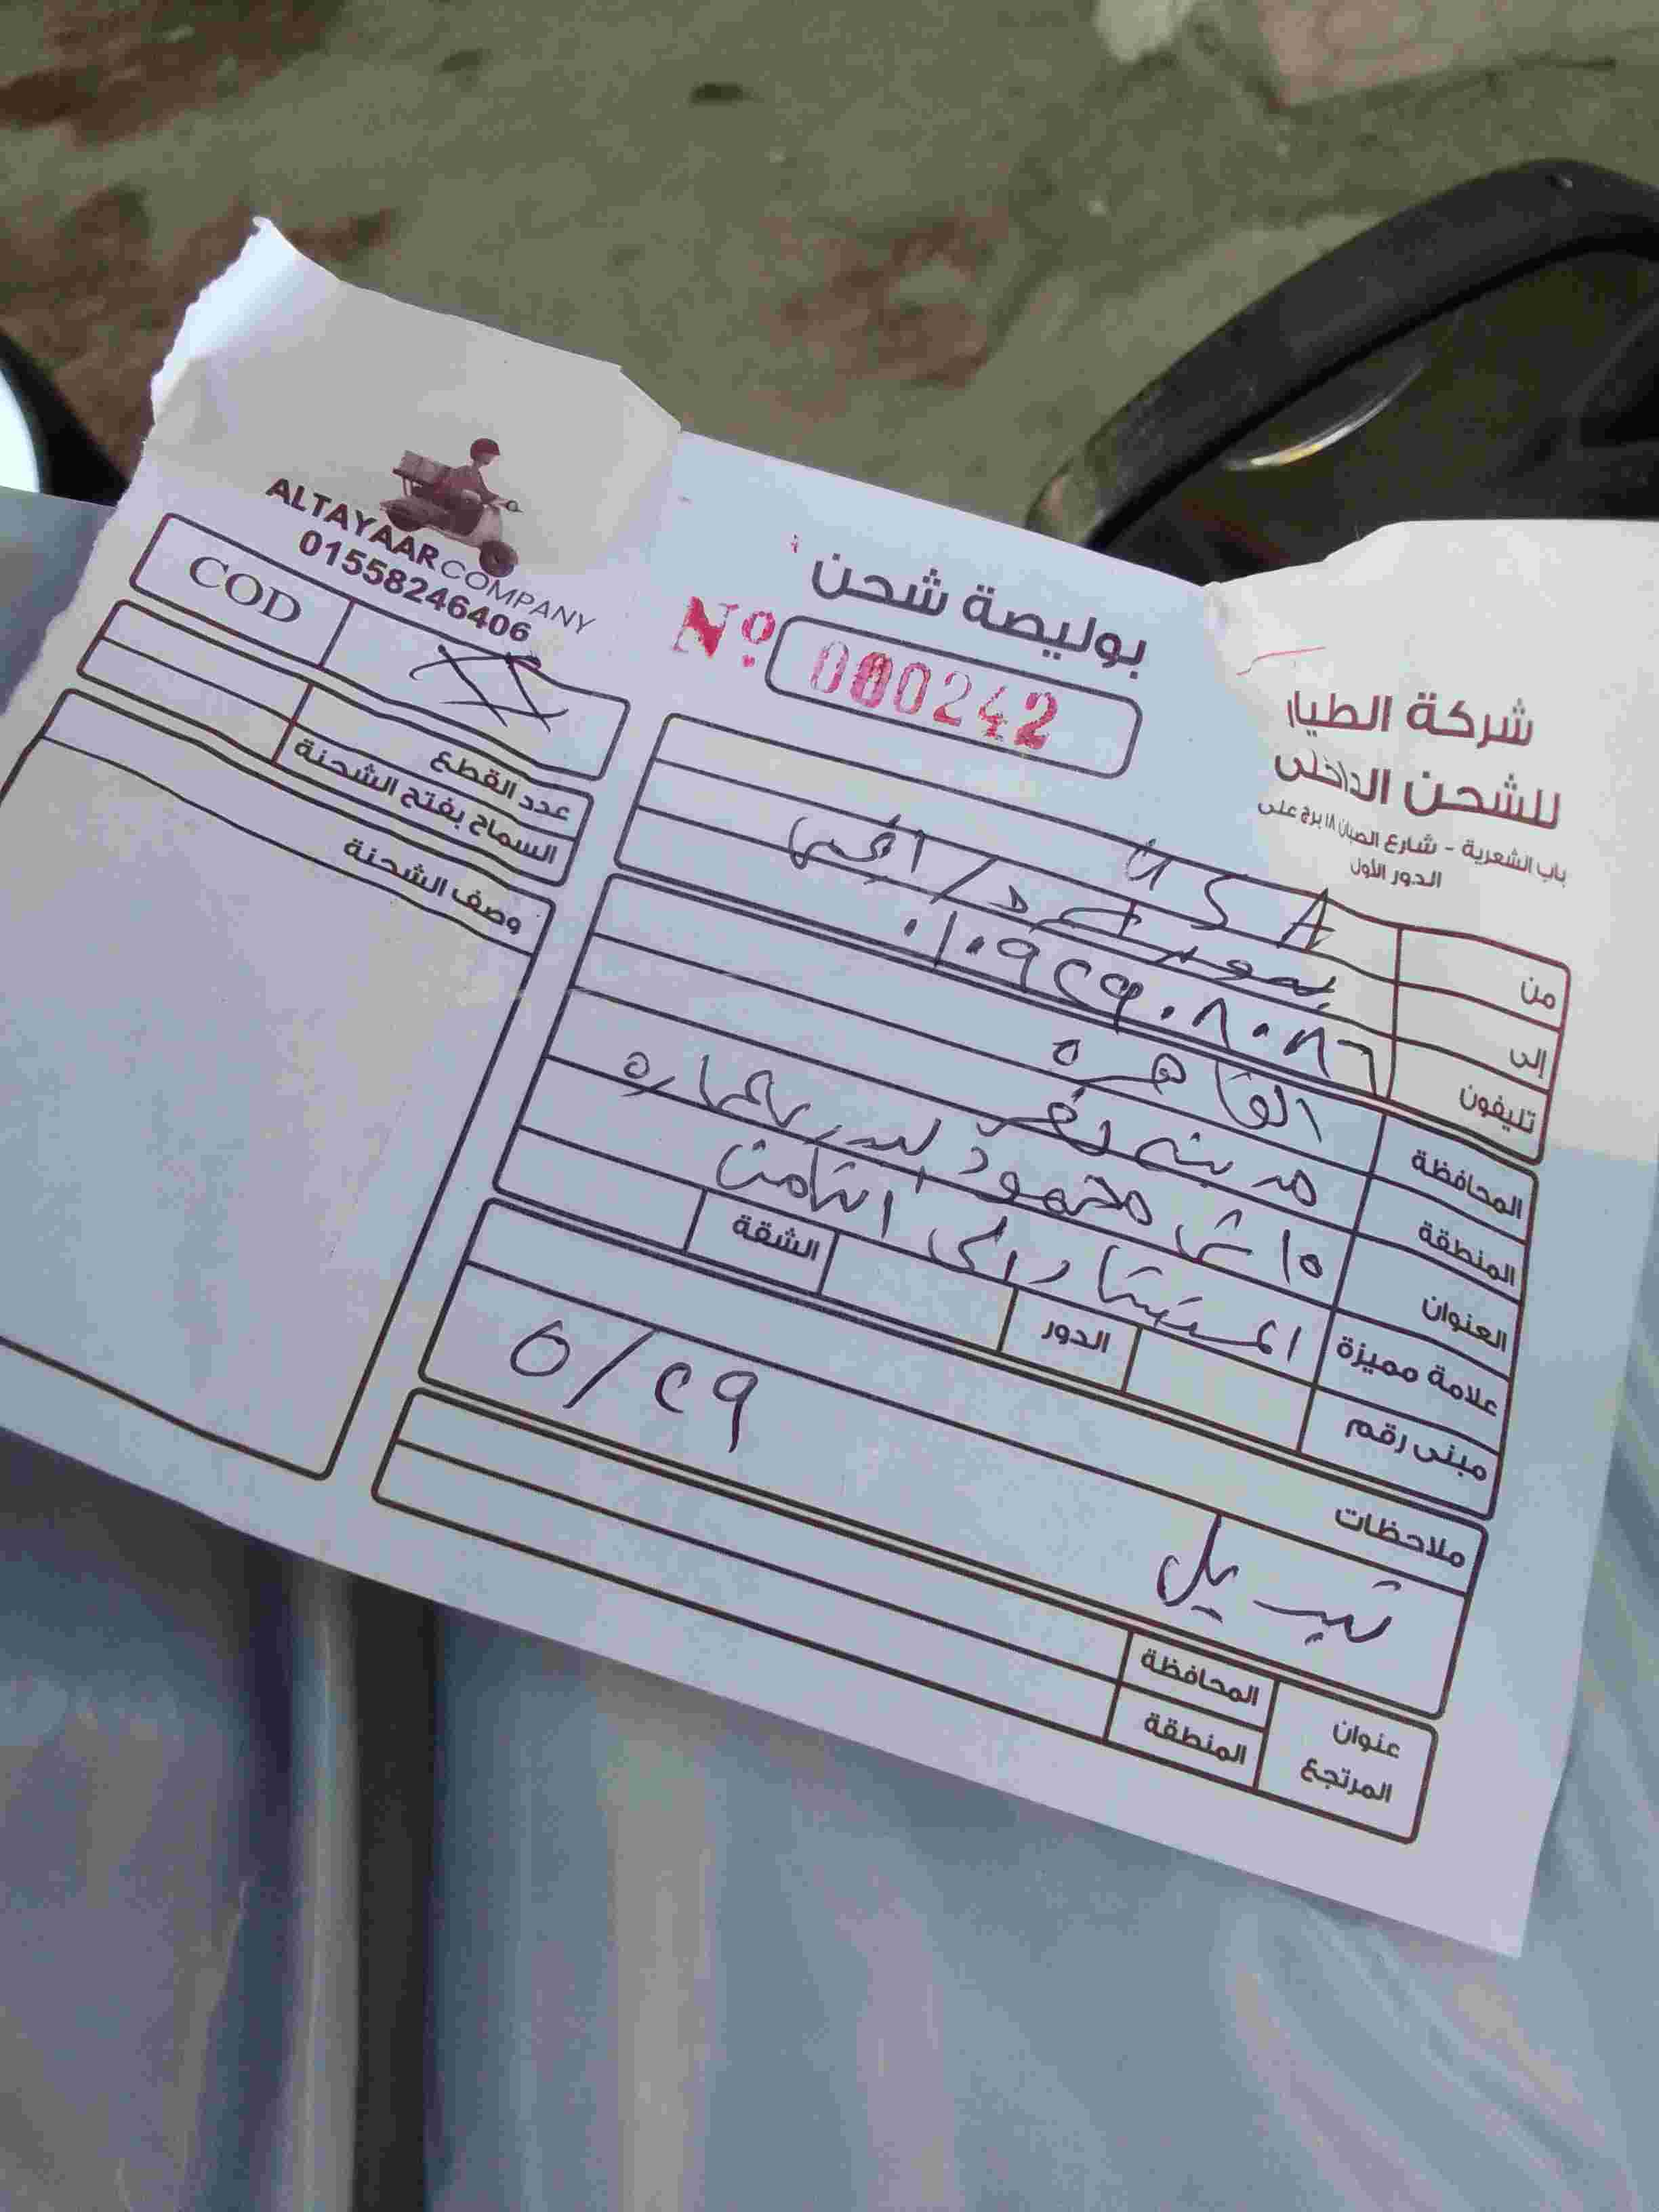 شركة الطيار
للشحن الداخلى
باب الشعرية - شارع الصبان ١٨ برج على
الدور الأول
بوليصة شحن
Nº 000242
ALTAYAAR COMPANY
01558246406
COD
عدد القطع
السماح بفتح الشحنة
وصف الشحنة
من U S A
إلى
تليفون ٠١٠٩٢٩٠٨٠٨٦
المحافظة القاهره
المنطقة مدينه نصر
العنوان ١٥ ش محمود العماره
علامة مميزة الثامن
مبنى رقم الدور الشقة
ملاحظات
٥/٢٩
تبديل
عنوان المرتجع
المحافظة
المنطقة